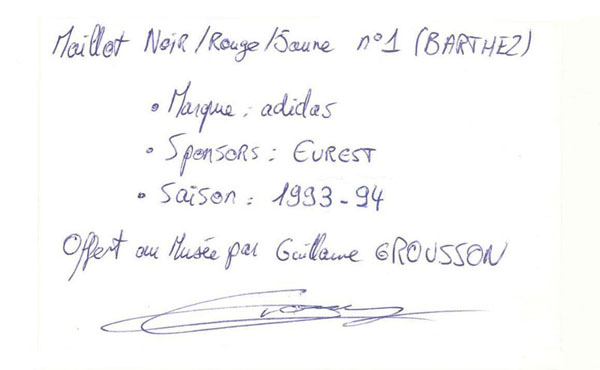 Maillot Noir/Rouge/Jaune n°1 (BARTHEZ)
• Marque : adidas
• Sponsors : EUREST
• Saison : 1993-94
Offert au Musée par Guillaume GROUSSON